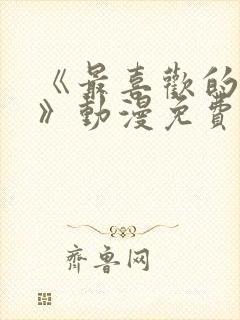 《最喜歡的
》動漫免費
齊魯网